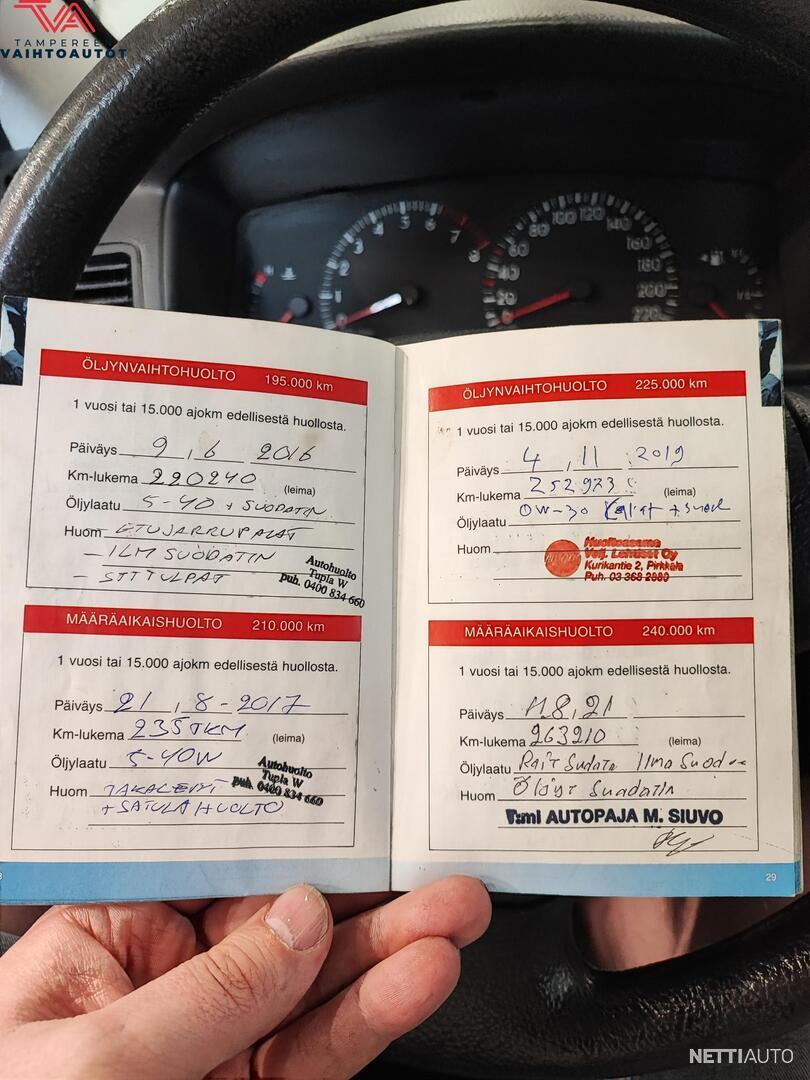 TVA
TAMPEREEN
VAIHTOAUTOT
1 2 3 4 5 6 7 8
20 40 60 80 100 120 140 160 180 200 220
ÖLJYNVAIHTOHUOLTO 195.000 km
1 vuosi tai 15.000 ajokm edellisestä huollosta.
Päiväys 9 , 6 2016
Km-lukema 220240
(leima)
Öljylaatu 5-40 + SUODATIN
Huom - ETUJARRUPALAT
- ILM SUODATIN
- SYT TULPAT
Autohuolto
Tupla W
puh. 0400 834 660
MÄÄRÄAIKAISHUOLTO 210.000 km
1 vuosi tai 15.000 ajokm edellisestä huollosta.
Päiväys 21 , 8 - 2017
Km-lukema 235TKM
(leima)
Öljylaatu 5-40W
Huom TAKALEVYT
+ SATULAHUOLTO
Autohuolto
Tupla W
puh. 0400 834 660
ÖLJYNVAIHTOHUOLTO 225.000 km
1 vuosi tai 15.000 ajokm edellisestä huollosta.
Päiväys 4 , 11 2019
Km-lukema 252973
(leima)
Öljylaatu 0W-30 + suod
Huom
Huoltoasema
Velj. Lehtiset Oy
Kurikantie 2, Pirkkala
Puh. 03 368 2880
MÄÄRÄAIKAISHUOLTO 240.000 km
1 vuosi tai 15.000 ajokm edellisestä huollosta.
Päiväys 11.8,21
Km-lukema 263210
(leima)
Öljylaatu Rait Suodatin Ilma Suod
Huom Öljyt Suodatin
T:mi AUTOPAJA M. SIUVO
29
NETTIAUTO